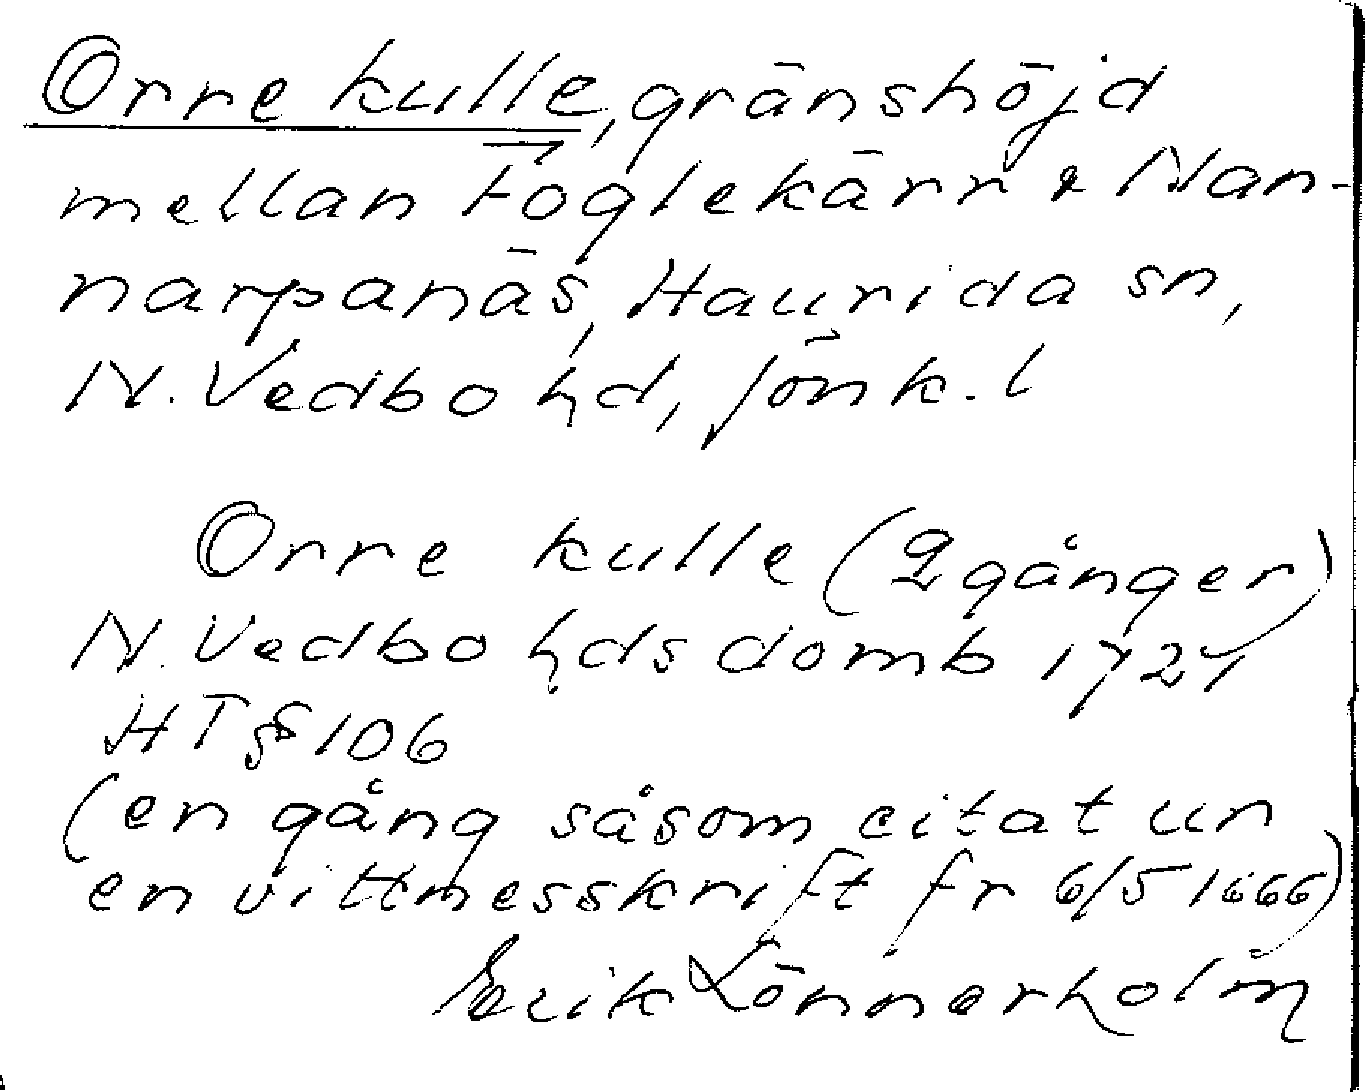 Orre kulle, gränshöjd
mellan Föglekärr & Nan-
narpanäs, Haurida sn,
N. Vedbo hd, Jönk. l
Orre kulle (2 gånger)
N. Vedbo hds domb 1724
HT § 106
(en gång såsom citat ur
en vittnesskrift fr 6/5 1666)
Erik Lönnerholm